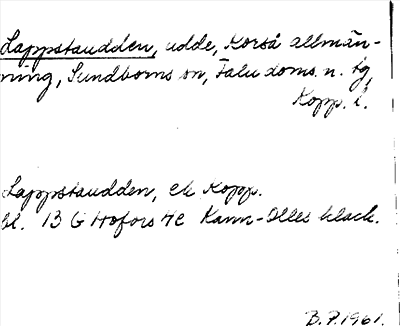 Lappstaudden, udde, Korså allmän-
ning, Sundborns sn, Falu doms. n. tg,
Kopp. l.
Lappstaudden, ek Kopp.
bl. 13 G Hofors 7c Karin-Olles klack.
B.P. 1961.